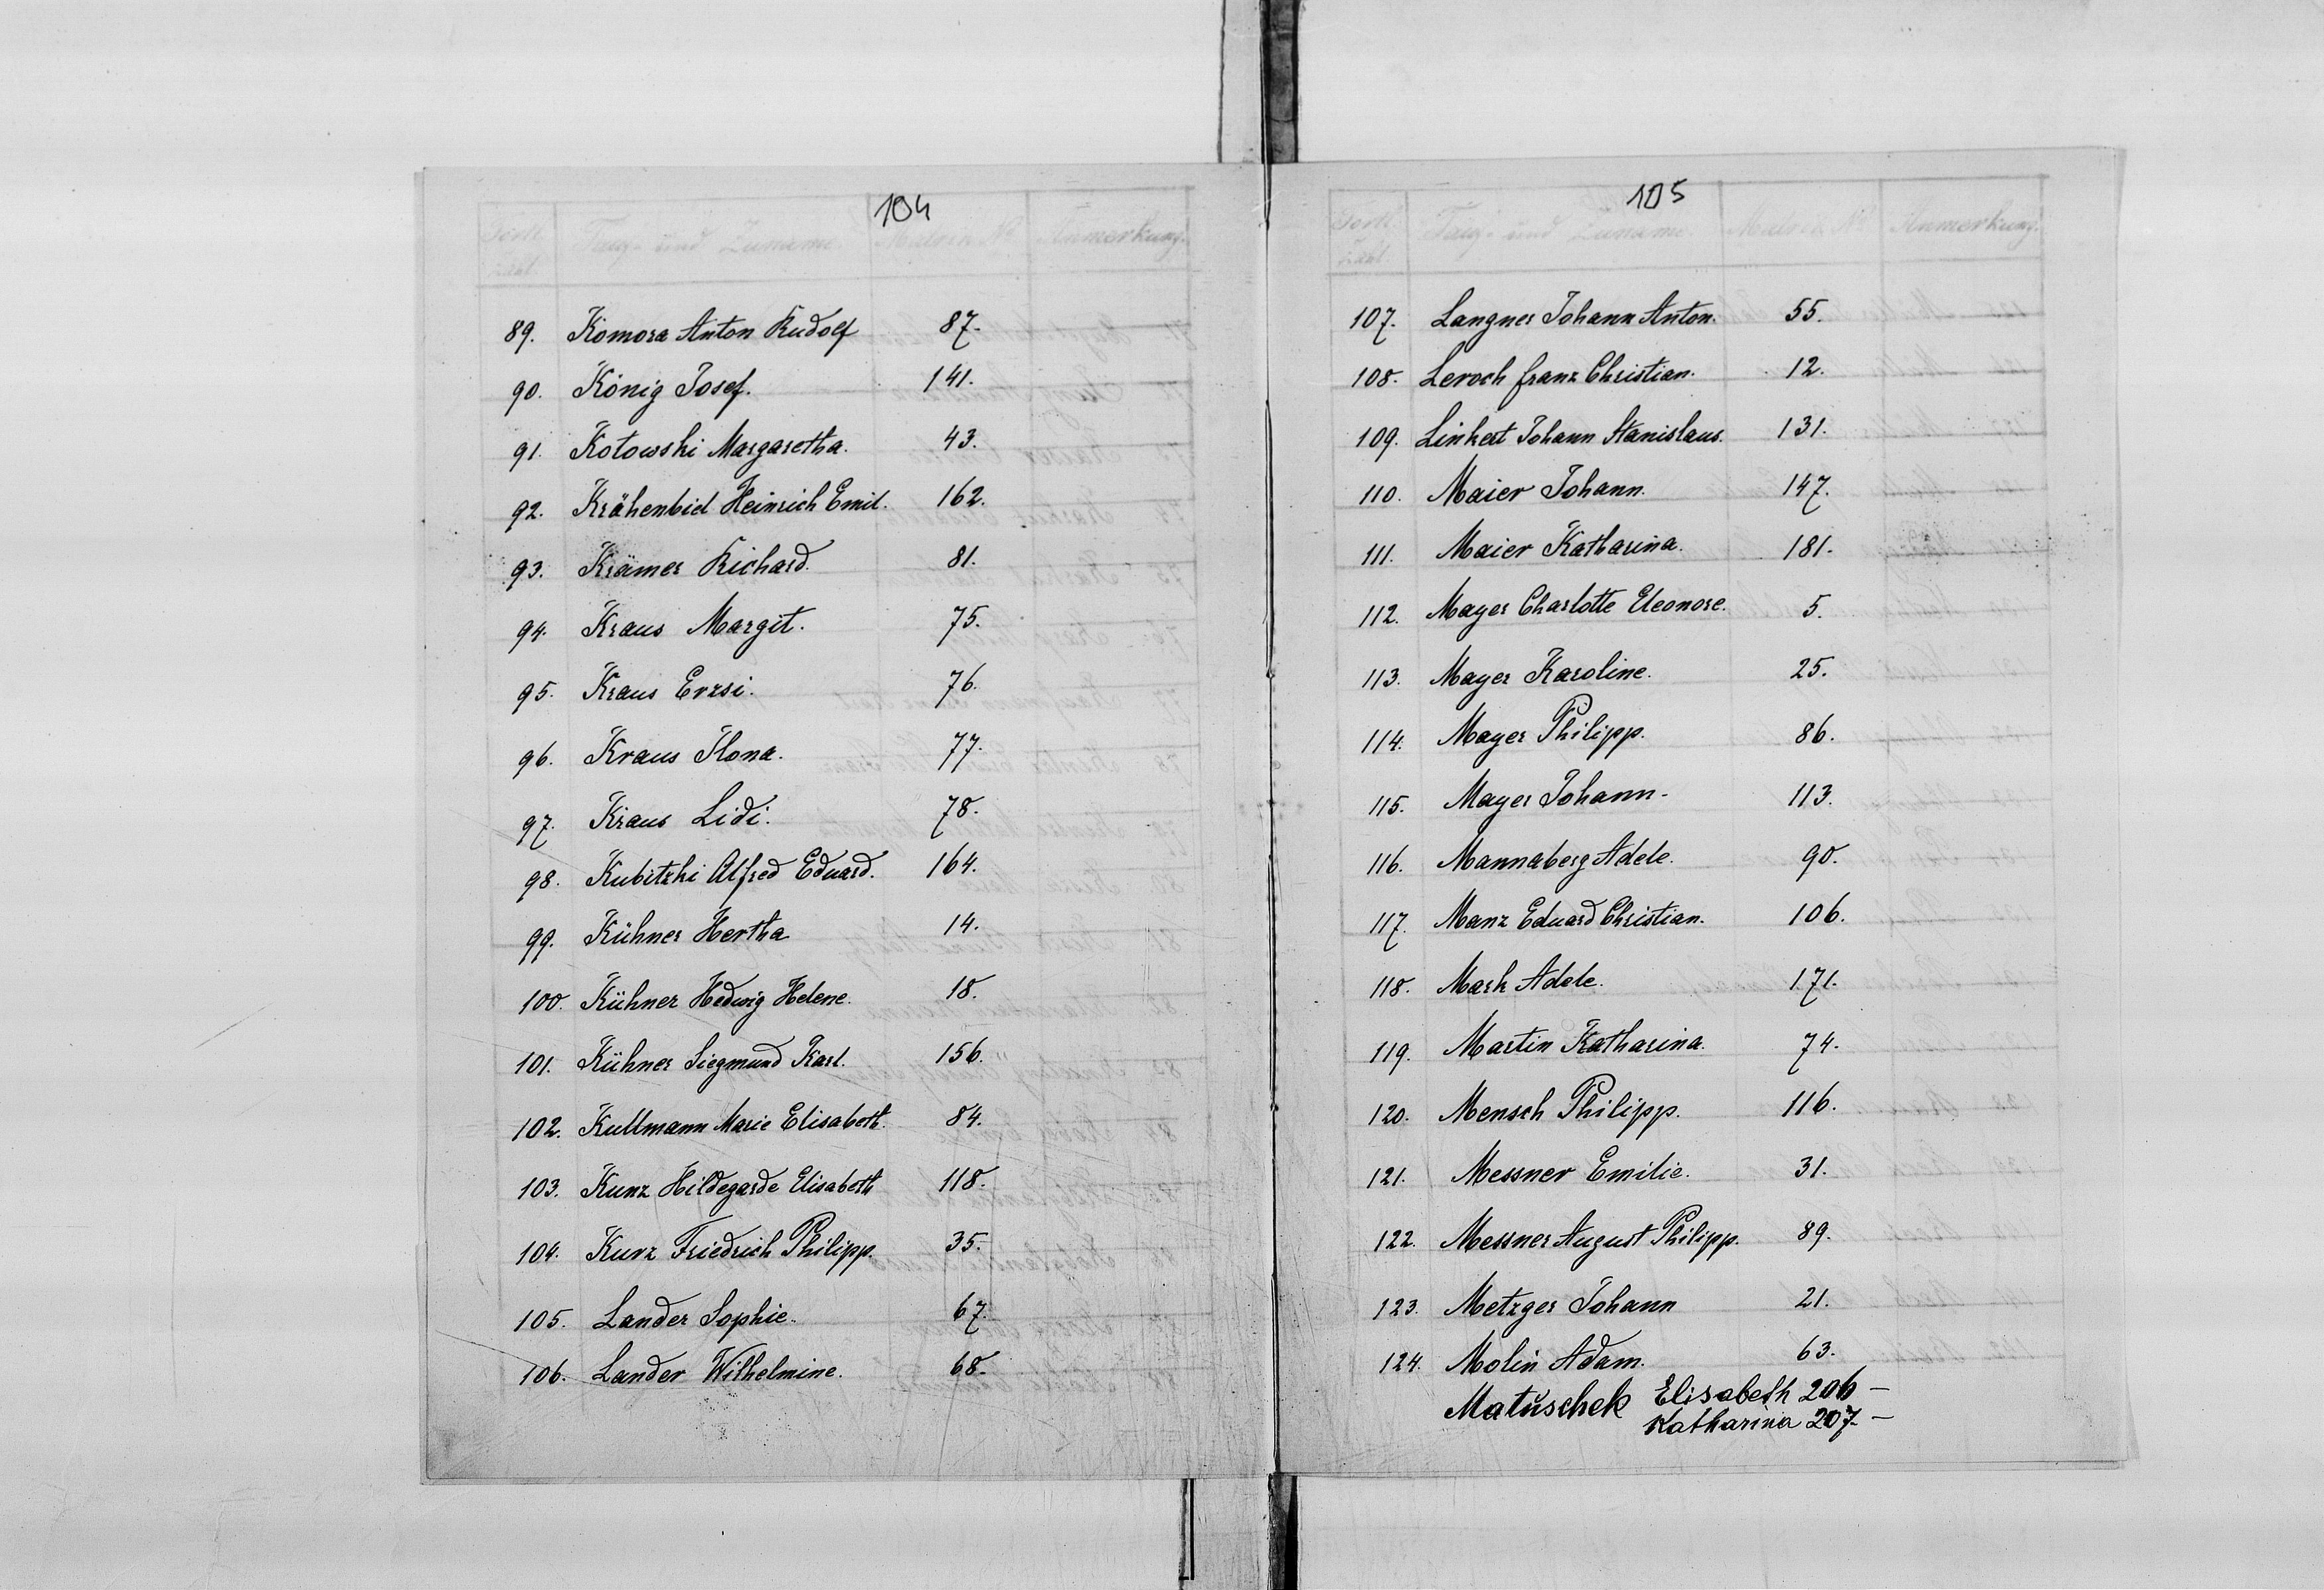 104
Fortl. Tauf- und Zuname. Matrik No Anmerkung.
zahl.
89. Komora Anton Rudolf 87.
90. König Josef. 141.
91. Kotowski Margaretha. 43.
92. Krähenbiel Heinrich Emil. 162.
93. Krämer Richard. 81.
94. Kraus Margit. 75.
95. Kraus Erzsi. 76.
96. Kraus Ilona. 77.
97. Kraus Lidi. 78.
98. Kubitzki Alfred Eduard. 164.
99. Kühner Hertha 14.
100. Kühner Hedwig Helene. 18.
101. Kühner Siegmund Karl. 156.
102. Kullmann Marie Elisabeth. 84.
103. Kunz Hildegarde Elisabeth 118.
104. Kurz Friedrich Philipp. 35.
105. Lander Sophie. 67.
106. Lander Wilhelmine. 68.
105
Fortl. Tauf- und Zuname. Matrik No Anmerkung.
zahl.
107. Langner Johann Anton. 55.
108. Leroch Franz Christian. 12.
109. Linkert Johann Stanislaus. 131.
110. Maier Johann. 147.
111. Maier Katharina. 181.
112. Mayer Charlotte Eleonore. 5.
113. Mayer Karoline. 25.
114. Mayer Philipp. 86.
115. Mayer Johann. 113.
116. Mannaberg Adele. 90.
117. Manz Eduard Christian. 106.
118. Mark Adele. 171.
119. Martin Katharina. 74.
120. Mensch Philipp. 116.
121. Messner Emilie. 31.
122. Messner August Philipp. 89.
123. Metzger Johann 21.
124. Molin Adam. 63.
Matuschek Elisabeth 206 –
Katharina 207. –